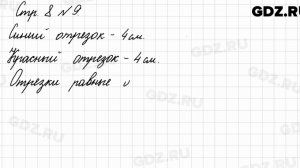 GDZ.RU
Стр. 8 №9.
Синий отрезок - 4 см.
Красный отрезок - 4 см.
Отрезки равные
GDZ.RU